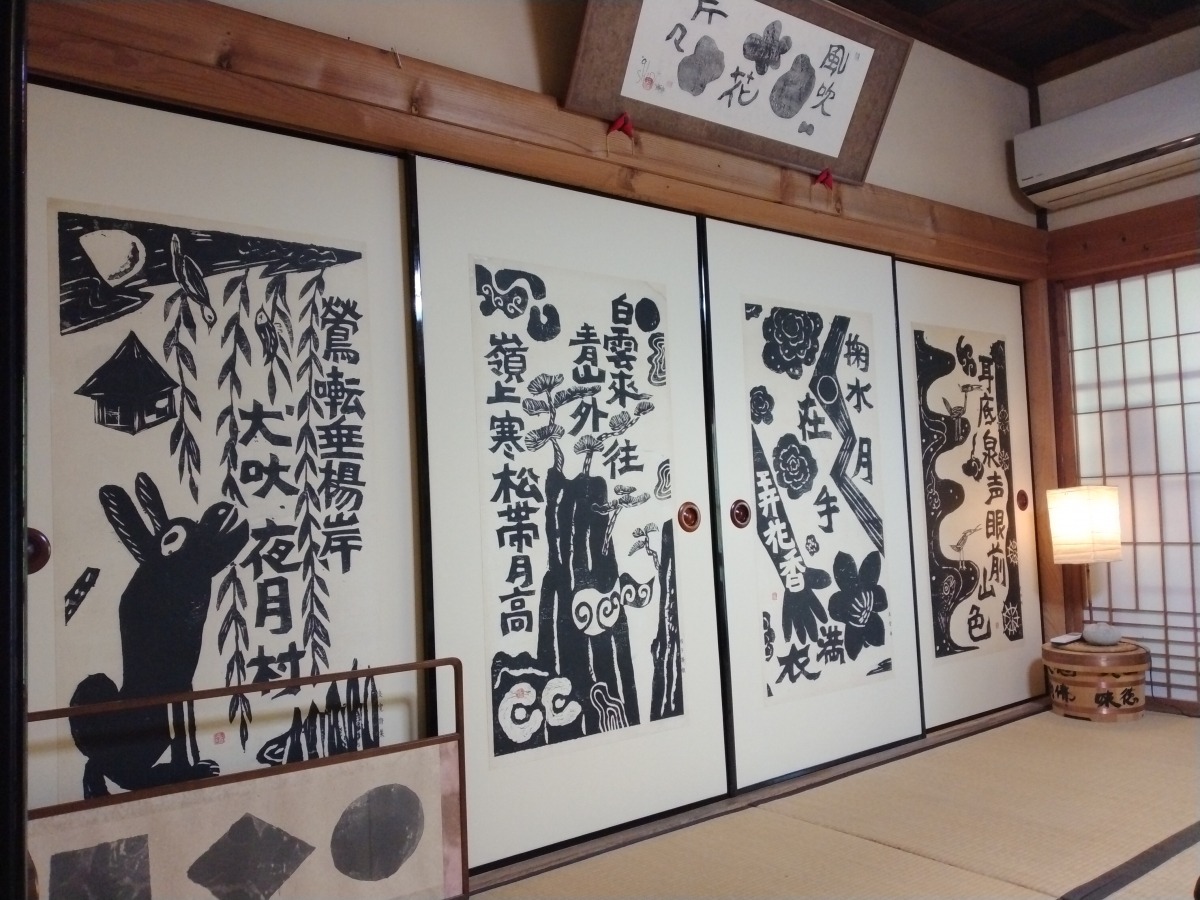 風吹
花
片々
耳底泉声眼前山色
掬水月
在手
弄花香
満衣
白雲來往
青山外
嶺上寒松帯月高
鶯囀垂楊岸
犬吠夜月村